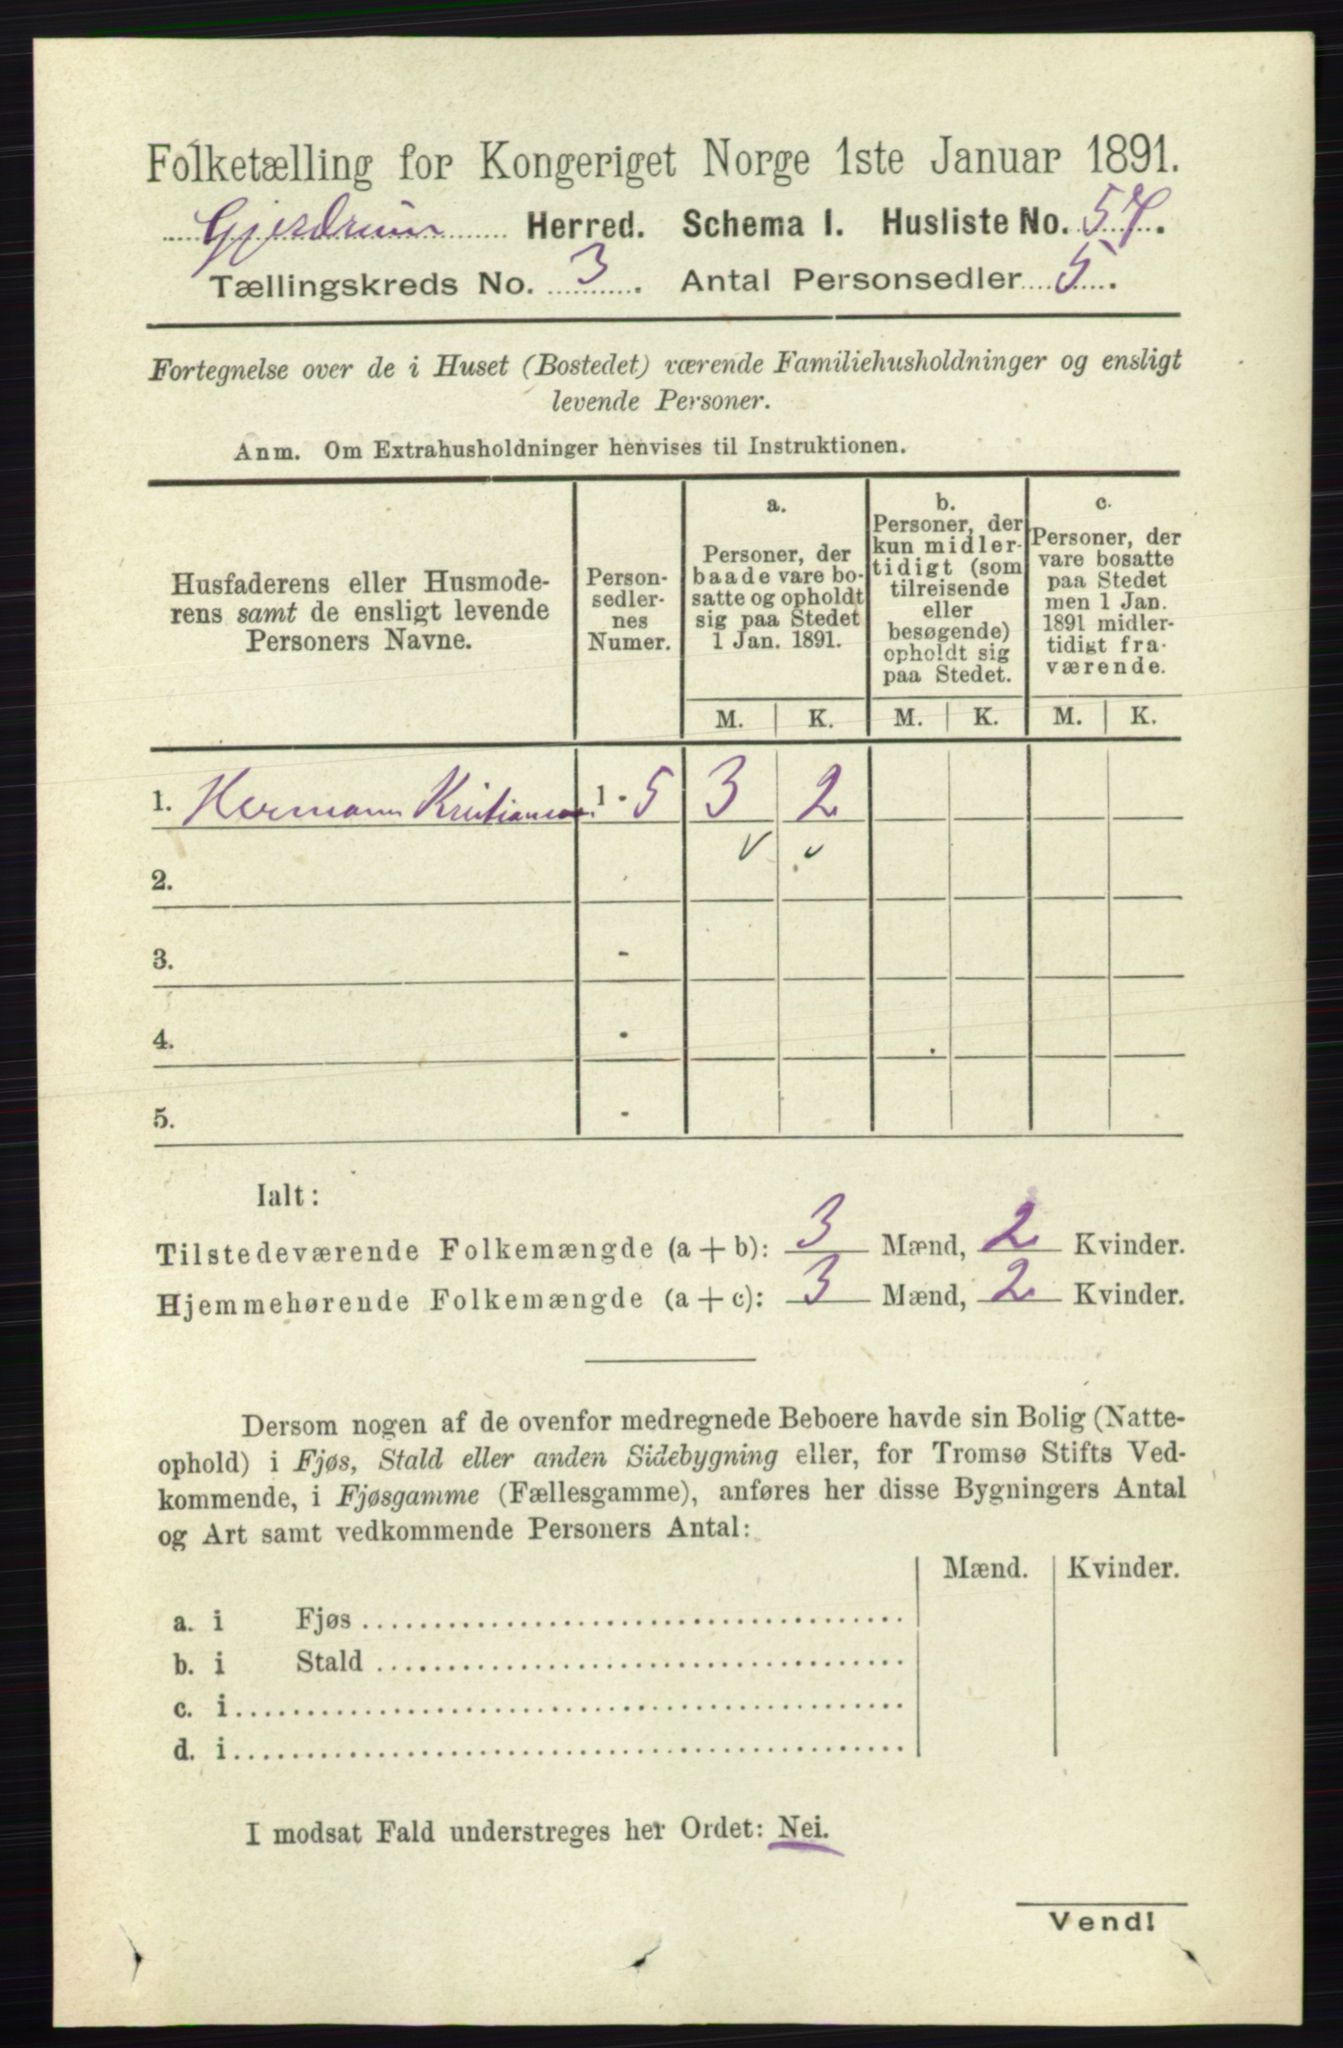 Folketælling for Kongeriget Norge 1ste Januar 1891.
Gjerdrum Herred. Schema I. Husliste No. 57.
Tællingskreds No. 3. Antal Personsedler 5.
Fortegnelse over de i Huset (Bostedet) værende Familiehusholdninger og ensligt
levende Personer.
Anm. Om Extrahusholdninger henvises til Instruktionen.
Husfaderens eller Husmode-
rens samt de ensligt levende
Personers Navne.
Person-
sedler-
nes
Numer.
a.
Personer, der
baade vare bo-
satte og opholdt
sig paa Stedet
1 Jan. 1891.
b.
Personer, der
kun midler-
tidigt (som
tilreisende
eller
besøgende)
opholdt sig
paa Stedet.
c.
Personer, der
vare bosatte
paa Stedet
men 1 Jan.
1891 midler-
tidigt fra-
værende.
M. K. M. K. M. K.
1. Hermann Kristiansen 1 - 5 3 2
2.
3. -
4. -
5. -
Ialt:
Tilstedeværende Folkemængde (a + b): 3 Mænd, 2 Kvinder.
Hjemmehørende Folkemængde (a + c): 3 Mænd, 2 Kvinder.
Dersom nogen af de ovenfor medregnede Beboere havde sin Bolig (Natte-
ophold) i Fjøs, Stald eller anden Sidebygning eller, for Tromsø Stifts Ved-
kommende, i Fjøsgamme (Fællesgamme), anføres her disse Bygningers Antal
og Art samt vedkommende Personers Antal:
Mænd. Kvinder.
a. i Fjøs
b. i Stald
c. i
d. i
I modsat Fald understreges her Ordet: Nei.
Vend!